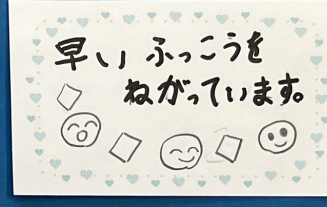 早い ふっこうを
ねがっています。